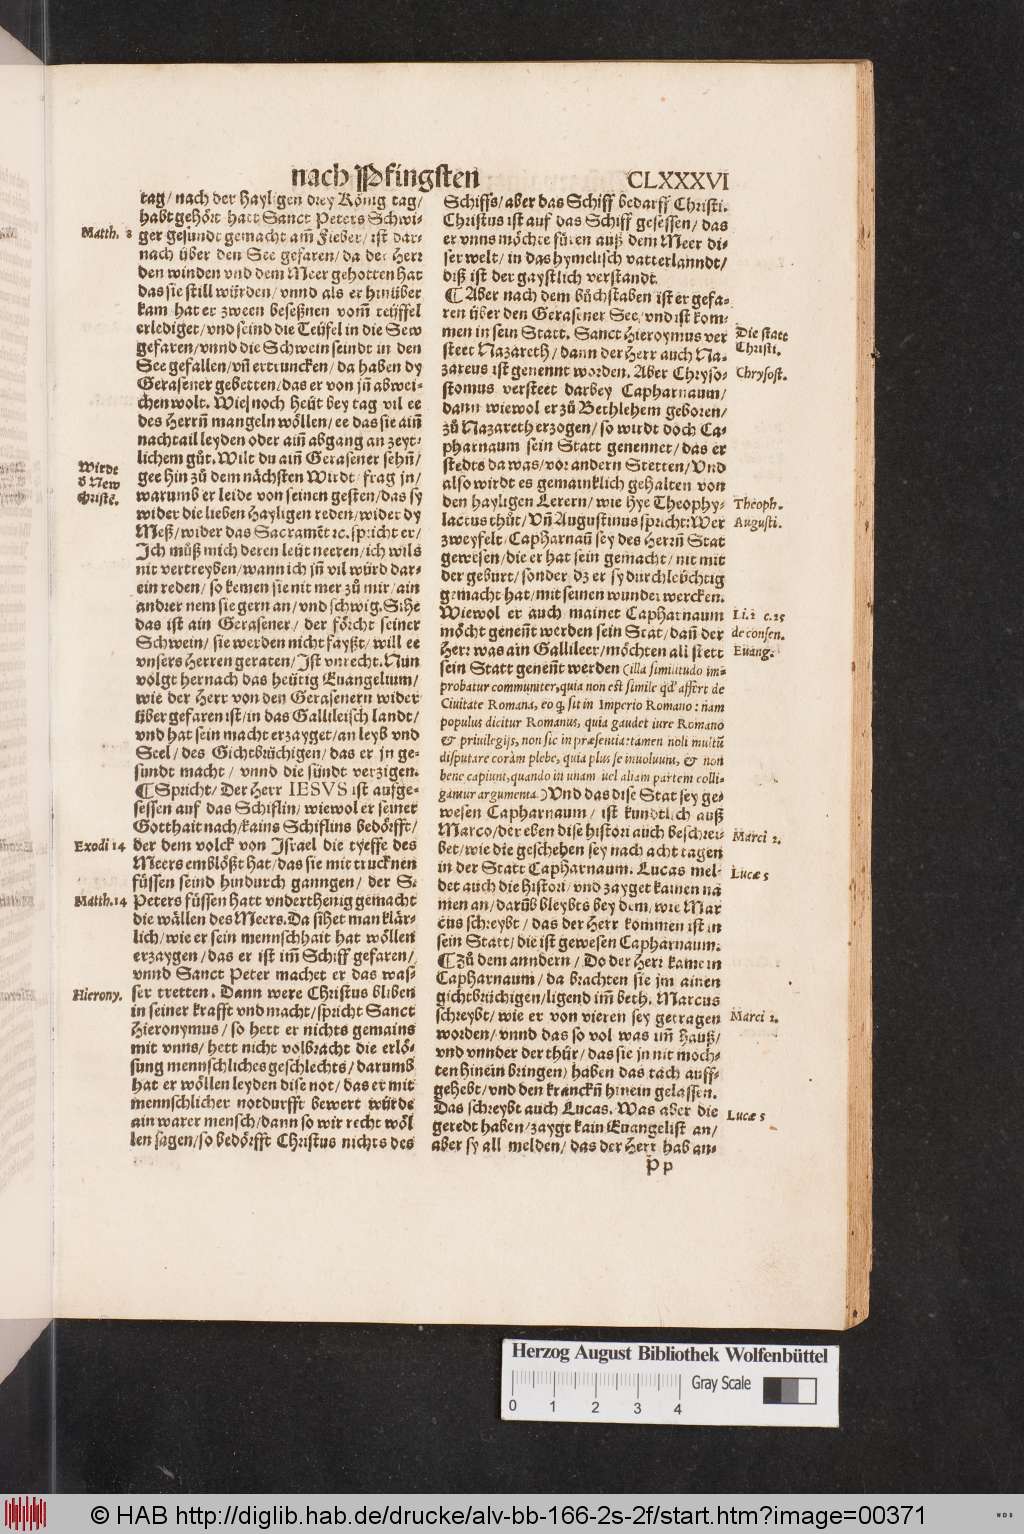 nach Pfingsten
CLXXXVI
tag/ nach der Hayligen drey König tag/
habt gehört hatt Sanct Peters Schwi-
ger gesundt gemacht am̃ Fieber/ ist dar-
nach über den See gefaren/ da der Herr
den winden vnd dem Meer gebotten hat
das sie still würden/ vnnd als er hinüber
kam hat er zween beseßnen vom̃ teüffel
erlediget/ vnd seind die Teüfel in die Sew
gefaren/ vnnd die Schwein seindt in den
See gefallen/ vñ ertruncken/ da haben dy
Gerasener gebetten/ das er von jñ abwei-
chen wolt. Wie noch heüt bey tag vil ee
des Herrñ mangeln wöllen/ ee das sie aiñ
nachtail leyden oder aiñ abgang an zeyt-
lichem gůt. Wilt du aiñ Gerasener sehñ/
gee hin zů dem nächsten Wirdt/ frag jn/
warumb er leide von seinen gesten/ das sy
wider die lieben Hayligen reden/ wider dy
Meß/ wider das Sacramẽt ꝛc. spricht er/
Ich můß mich deren leüt neeren/ ich wils
nit vertreyben/ wann ich jñ vil würd dar-
ein reden/ so kemen sie nit mer zů mir/ ain
andrer nem sie gern an/ vnd schwig. Sihe
das ist ain Gerasener/ der förcht seiner
Schwein/ sie werden nicht fayßt/ will ee
vnsers Herren geraten/ Ist vnrecht. Nun
volgt hernach das heütig Euangelium/
wie der Herr von den Gerasenern wider
über gefaren ist/ in das Gallileisch landt/
vnd hat sein macht erzayget/ an leyb vnd
Seel/ des Gichtbrüchigen/ das er jn ge-
sundt macht/ vnnd die sündt verzigen.
¶ Spricht/ Der Herr IESVS ist aufge-
sessen auf das Schiflin/ wiewol er seiner
Gotthait nach/ kains Schiflins bedörfft/
der dem volck von Israel die tyeffe des
Meers emblößt hat/ das sie mit trucknen
füssen seind hindurch ganngen/ der S.
Peters füssen hatt vnderthenig gemacht
die wällen des Meers. Da sihet man klär-
lich/ wie er sein mennschhait hat wöllen
erzaygen/ das er ist im̃ Schiff gefaren/
vnnd Sanct Peter machet er das was-
ser tretten. Dann were Christus bliben
in seiner krafft vnd macht/ spricht Sanct
Hieronymus/ so hett er nichts gemains
mit vnns/ hett nicht volbracht die erlö-
sung mennschliches geschlechts/ darumb
hat er wöllen leyden dise not/ das er mit
mennschlicher notdurfft bewert würde
ain warer mensch/ dann so wir recht wöl
len sagen/ so bedörfft Christus nichts des
Matth. 8
Wirdt
ð New
Christẽ.
Exodi 14
Matth. 14
Hierony.
Schiffs/ aber das Schiff bedarff Christi.
Christus ist auf das Schiff gesessen/ das
er vnns möchte füren auß dem Meer di-
ser welt/ in das hymelisch vatterlanndt/
diß ist der gaystlich verstandt.
¶ Aber nach dem bůchstaben ist er gefa-
ren über den Gerasener See/ vnd ist kom-
men in sein Statt. Sanct Hieroymus ver
steet Nazareth/ dann der Herr auch Na-
zareus ist genennt worden. Aber Chryso-
stomus versteet darbey Capharnaum/
dann wiewol er zů Bethlehem geboren/
zů Nazareth erzogen/ so wirdt doch Ca-
pharnaum sein Statt genennet/ das er
stedts da was/ vor andern Stetten/ Vnd
also wirdt es gemainklich gehalten von
den hayligen Lerern/ wie hye Theophy-
lactus thůt/ Vñ Augustinus spricht: Wer
zweyfelt/ Capharnaũ sey des Herrñ Stat
gewesen/ die er hat sein gemacht/ nit mit
der geburt/ sonder dz er sy durchleüchtig
gemacht hat/ mit seinen wunderwercken.
Wiewol er auch mainet Capharnaum
möcht geneñt werden sein Stat/ dañ der
Herr was ain Gallileer/ möchten all stett
sein Statt geneñt werden (illa similitudo im-
probatur communiter, quia non est simile qd' affert de
Ciuitate Romana, eo q sit in Imperio Romano: nam
populus dicitur Romanus, quia gaudet iure Romano
& priuilegijs, non sic in præsentia: tamen noli multũ
disputare coràm plebe, quia plus se inuoluunt, & non
bene capiunt, quando in unam uel aliam partem colli-
gantur argumenta.) Vnd das dise Stat sey ge-
wesen Capharnaum/ ist kundtlich auß
Marco/ der eben dise histori auch beschrei-
bet/ wie die geschehen sey nach acht tagen
in der Statt Capharnaum. Lucas mel-
det auch die histori/ vnd zayget kainen na
men an/ darũb bleybts bey dem/ wie Mar
cus schreybt/ das der Herr kommen ist in
sein Statt/ die ist gewesen Capharnaum.
¶ Zů dem anndern/ Do der Herr kame in
Capharnaum/ da brachten sie jm ainen
gichtbrüchigen/ ligend im̃ beth. Marcus
schreybt/ wie er von vieren sey getragen
worden/ vnnd das so vol was im̃ Hauß/
vnd vnnder der thür/ das sie jn nit moch-
ten hinein bringen/ haben das tach auff-
gehebt/ vnd den kranckñ hinein gelassen.
Das schreybt auch Lucas. Was aber die
geredt haben/ zaygt kain Euangelist an/
aber sy all melden/ das der Herr hab an-
Pp
Die statt
Christi.
Chrysost.
Theoph.
Augusti.
Li. 2 c. 25
de consen.
Euang.
Marci 2.
Lucæ 5
Marci 2.
Lucæ 5
Herzog August Bibliothek Wolfenbüttel
Gray Scale
0 1 2 3 4
© HAB http://diglib.hab.de/drucke/alv-bb-166-2s-2f/start.htm?image=00371